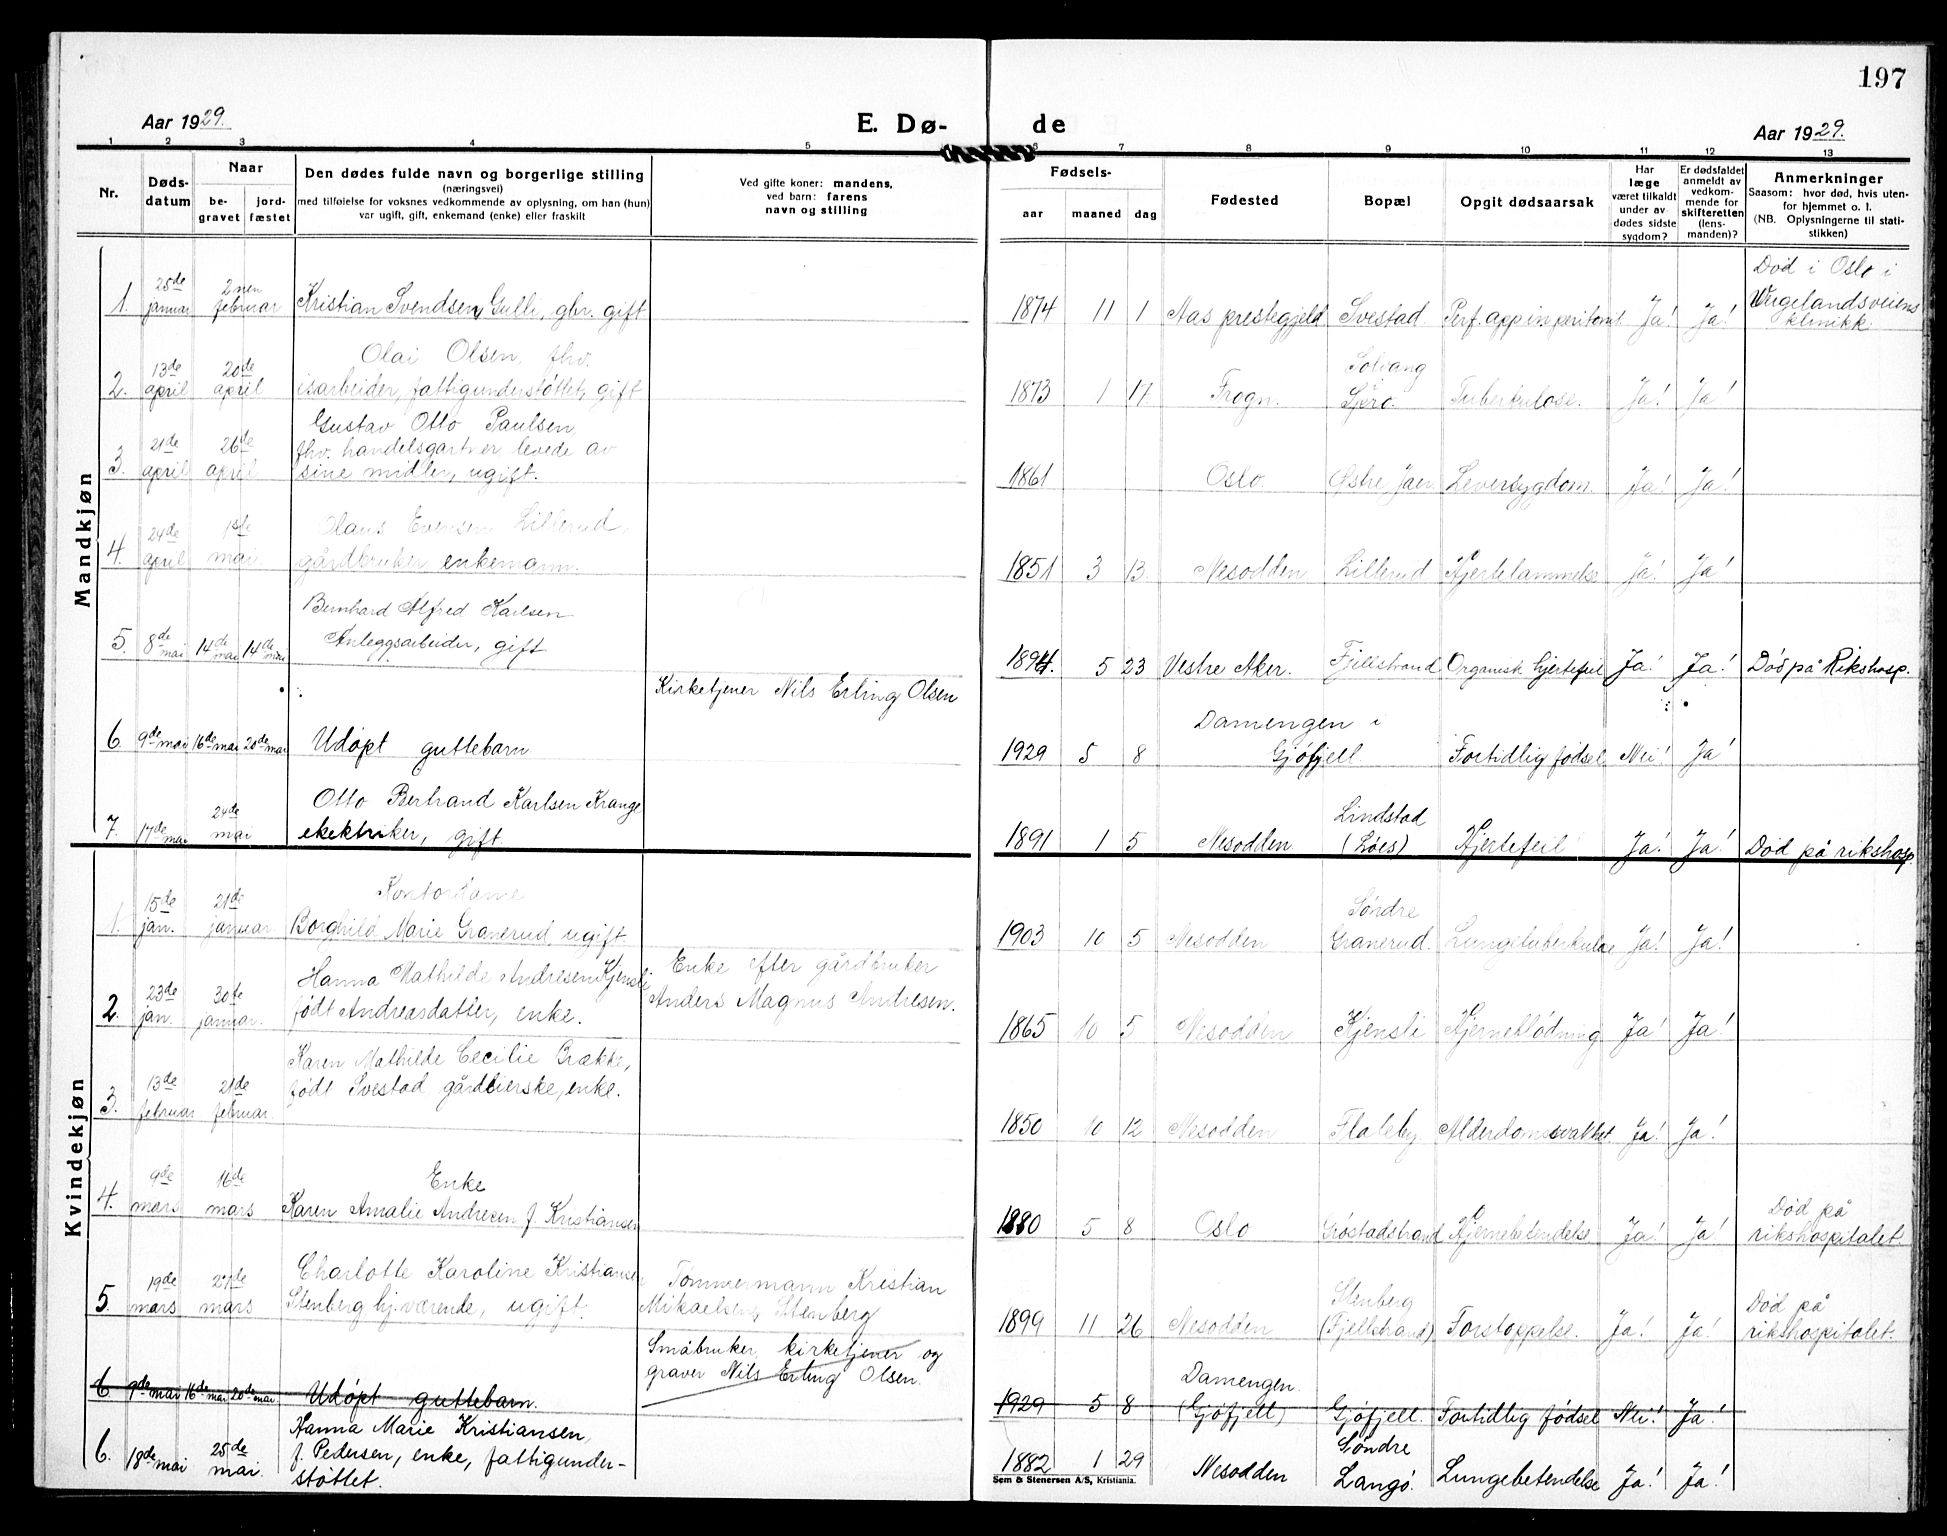 197
Aar 1929.
E. Dø-
de
Aar 1929.
1 2 3 4 5 6 7 8 9 10 11 12 13
Nr.
Døds-
datum
Naar
be-
gravet
jord-
fæstet
Den dødes fulde navn og borgerlige stilling
(næringsvei)
med tilføielse for voksnes vedkommende av oplysning, om han (hun)
var ugift, gift, enkemand (enke) eller fraskilt
Ved gifte koner: mandens,
ved barn: farens
navn og stilling
Fødsels-
aar maaned dag
Fødested
Bopæl
Opgit dødsaarsak
Har
læge
været tilkaldt
under av
dødes sidste
sygdom?
Er dødsfaldet
anmeldt av
vedkom-
mende for
skifteretten
(lens-
manden)?
Anmerkninger
Saasom: hvor død, hvis uten-
for hjemmet o. l.
(NB. Oplysningerne til stati-
stikken)
Mandkjøn
1. 25de januar 2nen februar Kristian Svendsen Gulli, gbr. gift 1874 11 1 Aas prestegjeld Svestad Perf. app in peritomt Ja! Ja! Død i Oslo i
Wergelandsveiens
klinikk.
2. 13de april 20de april Olai Olsen, fhv.
isarbeider, fattigunderstøttet, gift 1873 1 17 Frogn. Solvang
Spro. Tuberkulose. Ja! Ja!
3. 21de april 26de april Gustav Otto Paulsen,
fhv. handelsgartner levede av
sine midler, ugift. 1861 Oslo. Østre Jaer Leversygdom. Ja! Ja!
4. 24de april 1ste mai. Olaus Evensen Lillerud,
gårdbruker enkemann. 1851 3 13 Nesodden Lillerud Hjertelammelse Ja! Ja!
5. 8de mai 14de mai 14de mai Bernhard Alfred Karlsen
Anleggsarbeider, gift 1894. 5 23 Vestre Aker. Fjellstrand Organisk hjertefeil Ja! Ja! Død på Rikshosp.
Kirketjener Nils Erling Olsen
6. 9de mai 16de mai 20de mai Udøpt guttebarn 1929 5 8 Damengen i
Gjøfjell. Fortidlig fødsel Nei! Ja!
7. 17de mai 24de mai Otto Bertrand Karlsen Krange
ekektriker, gift 1891 1 5 Nesodden Lindstad
(Løes) Hjertefeil Ja! Ja! Død på rikshosp.
Kvindekjøn
1. 15de jan. 21de januar Kontordame
Borghild Marie Granerud, ugift 1903 10 5 Nesodden Søndre
Granerud. Lungetuberkulose Ja! Ja!
2. 23de jan. 30te januar. Hanna Mathilde Andresen Kjensli
født Andreasdatter, enke. Enke efter gårdbruker
Anders Magnus Andresen. 1865 10 5 Nesodden Kjensli Hjerneblødning Ja! Ja!
3. 13de februar 21de februar Karen Mathilde Cecilie Brække,
født Svestad gårdeierske, enke. 1850 10 12 Nesodden Flateby Alderdomssvakhet Ja! Ja!
4. 9de mars 16de mars Enke
Karen Amalie Andresen f. Kristiansen 1880 5 8 Oslo Grøstadstrand Hjernebetendelse Ja! Ja! Død på
rikshospitalet.
5. 19de mars 27de mars Charlotte Karoline Kristiansen
Stenberg hj.værende, ugift. Tømmermann Kristian
Mikaelsen, Stenberg 1899 11 26 Nesodden Stenberg
(Fjellstrand) Forstoppelse. Ja! Ja! Død på
rikshospitalet.
6 9de mai 16de mai 20de mai Udøpt guttebarn. Småbruker, kirketjener og
graver Nils Erling Olsen. 1929 5 8 Damengen.
(Gjøfjell) Gjøfjell. Fortidlig fødsel Nei! Ja!
6. 18de mai 25de mai. Hanna Marie Kristiansen,
f. Pedersen, enke, fattigunder-
støttet. 1882 1 29 Nesodden Søndre
Langø. Lungebetendelse Ja! Ja!
Sem & Stenersen A/S, Kristiania.